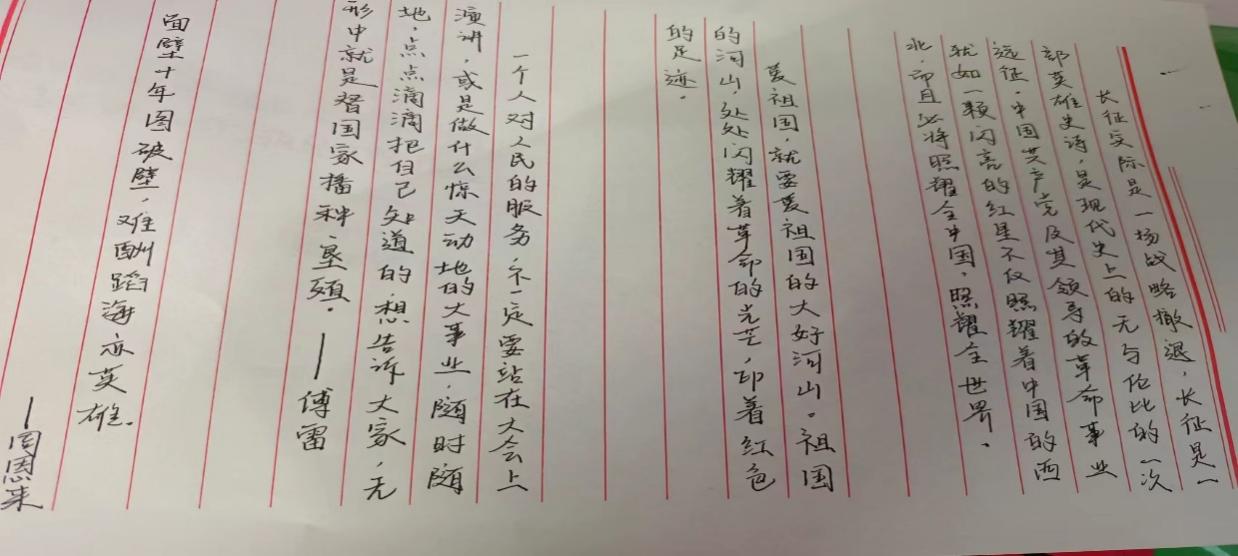 长征实际是一场战略撤退，长征是一
部英雄史诗，是现代史上的无与伦比的一次
远征。中国共产党及其领导的革命事业
就如一颗闪亮的红星不仅照耀着中国的西
北，而且必将照耀全中国，照耀全世界。
爱祖国，就要爱祖国的大好河山。祖国
的河山，处处闪耀着革命的光芒，印着红色
的足迹。
一个人对人民的服务，不一定要站在大会上
演讲，或是做什么惊天动地的大事业，随时随
地，点点滴滴把自己知道的想告诉大家，无
形中就是替国家播种、垦殖。——傅雷
面壁十年图破壁，难酬蹈海亦英雄。
——周恩来